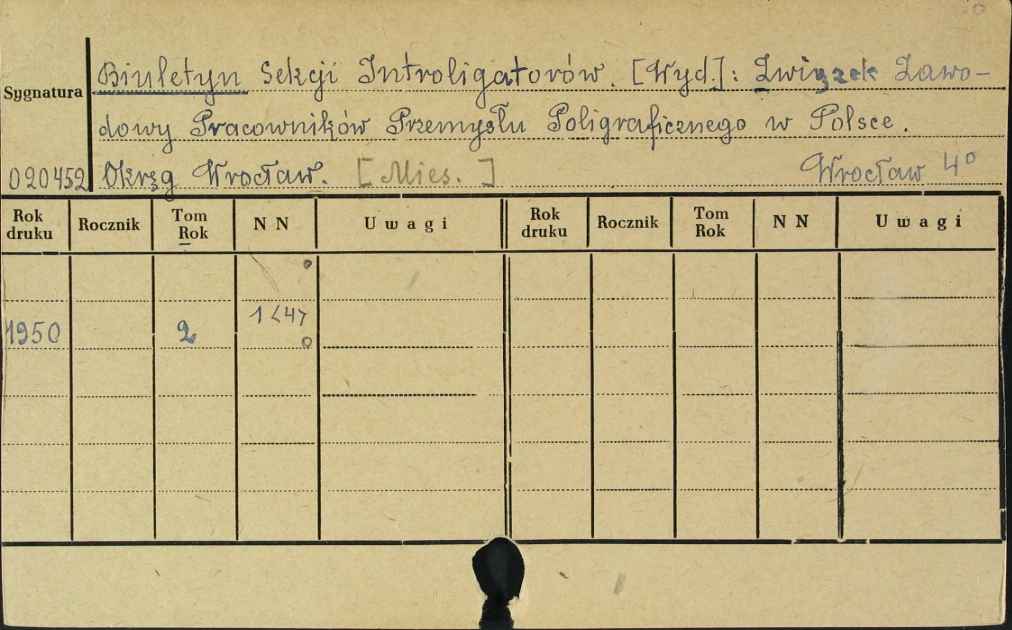 Biuletyn Sekcji Introligatorów. [Wyd.]: Związek Zawo-
Sygnatura
dowy Pracowników Przemysłu Poligraficznego w Polsce.
020452 Okrąg Wrocław. [Mies.] Wrocław 4°
Rok druku Rocznik Tom Rok NN Uwagi Rok druku Rocznik Tom Rok NN Uwagi
1950 2